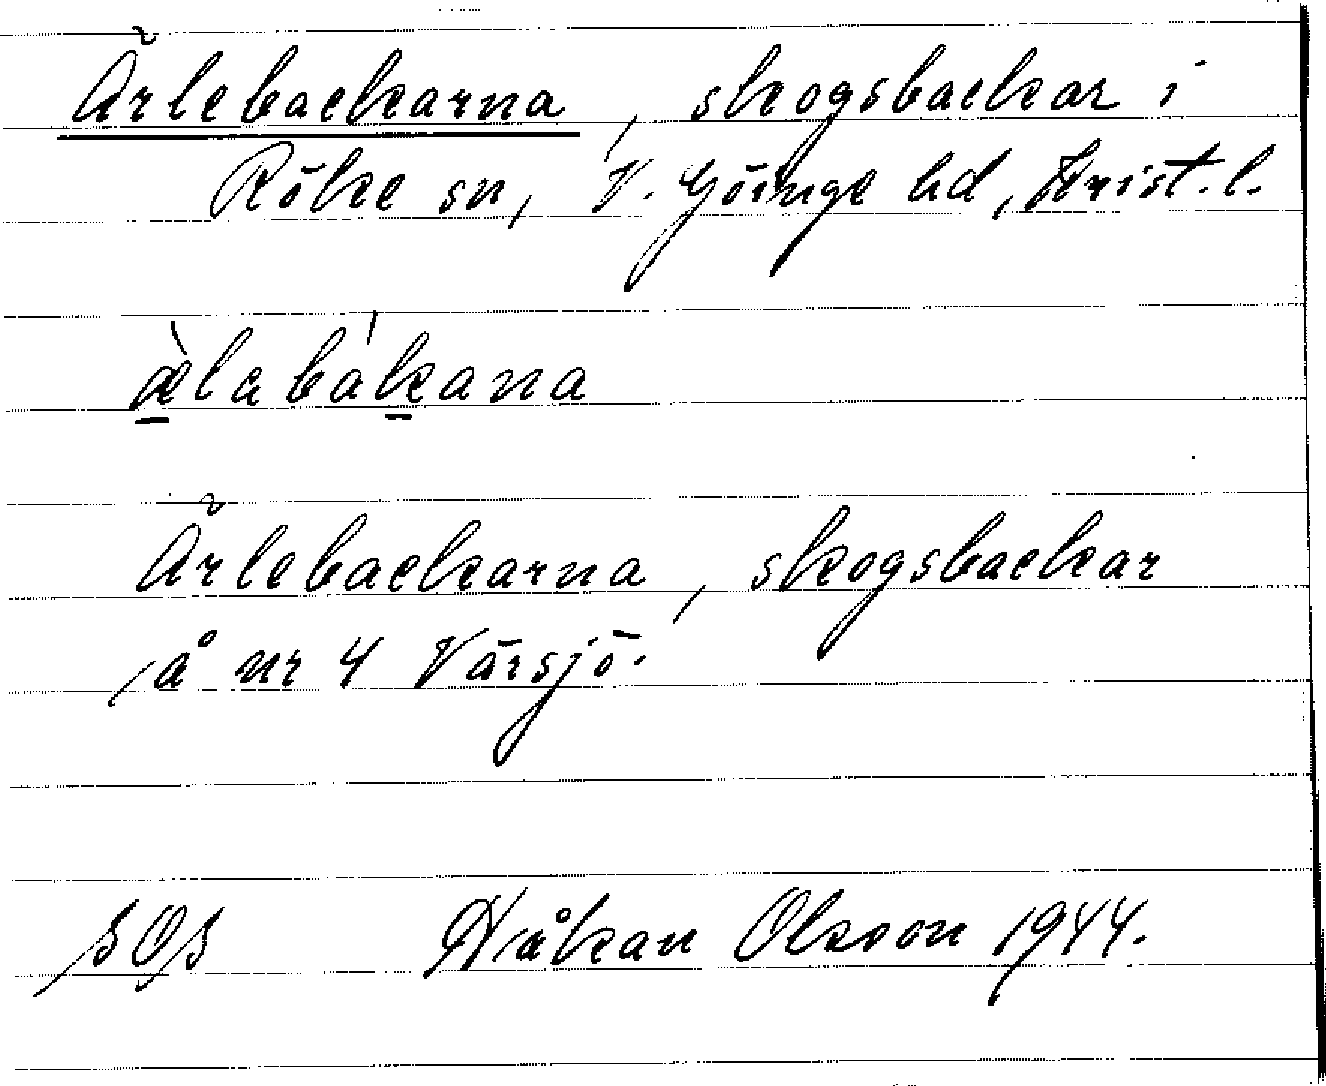 Ärlebackarna, skogsbackar i
Röke sn, V. Göinge hd, Krist. l.
æ̀labákana
Ärlebackarna, skogsbackar
å nr 4 Värsjö.
SOS Håkan Olsson 1944.